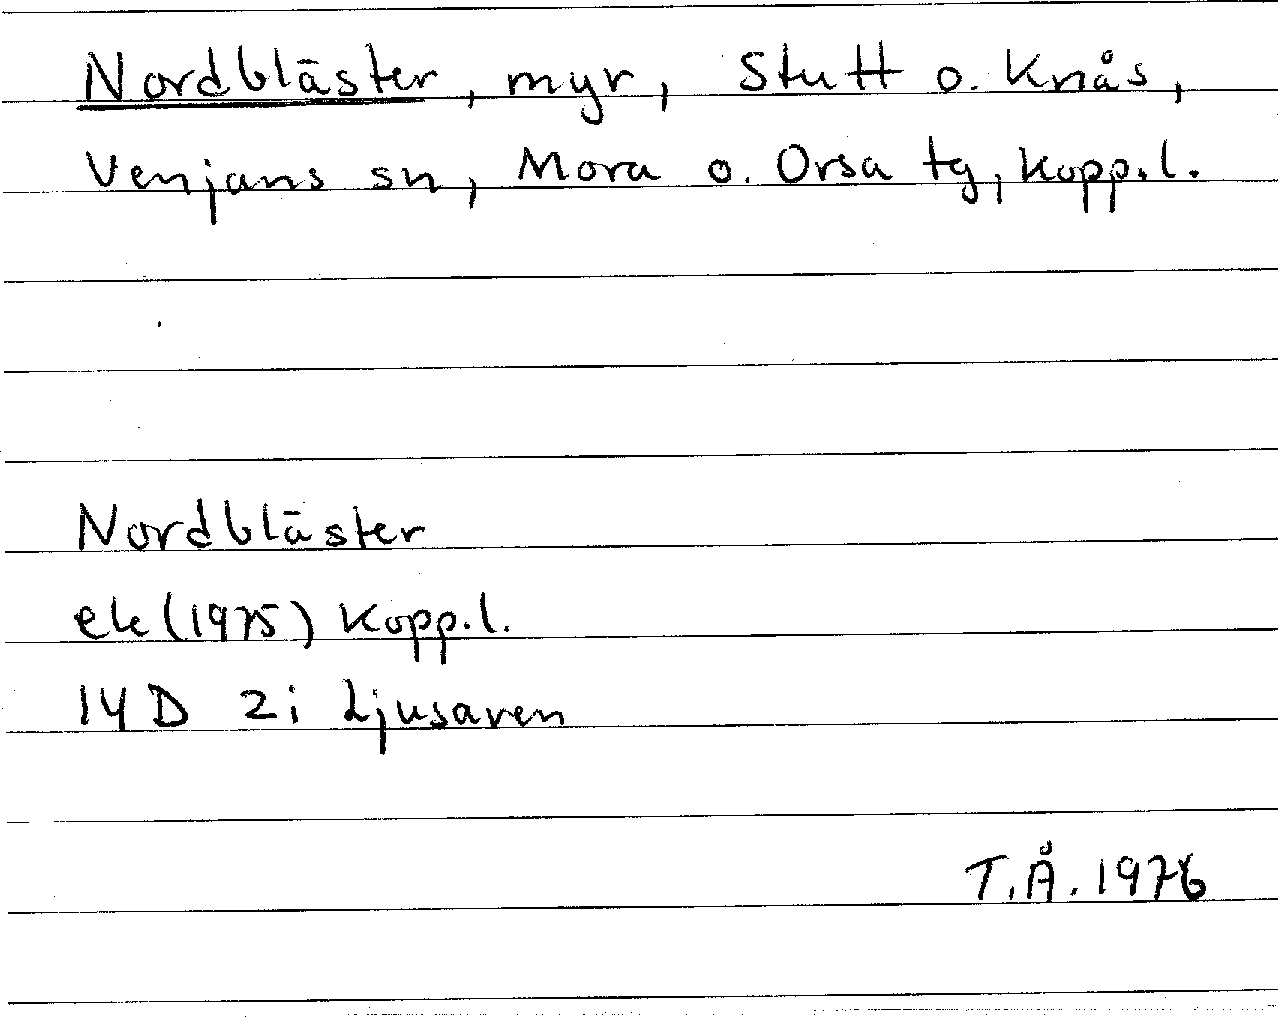 Nordbläster, myr, Stutt o. Knås,
Venjans sn, Mora o. Orsa tg, Kopp.l.
Nordbläster
ek (1975) Kopp.l.
14D 2i Ljusaren
T.Å. 1976